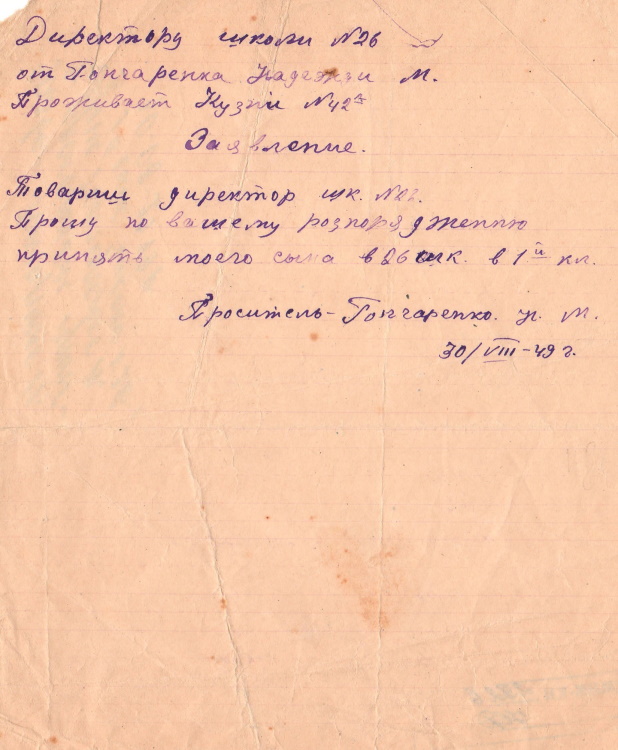 Директору школи №26
от Гончаренка Надежди М.
Проживает Кузни №42а
Заявление.
Товариш директор шк. №26.
Прошу по вашему розпорядженню
принять моего сына в 26 шк. в 1й кл.
Проситель - Гончаренко. н. М.
30/VIII-49 г.